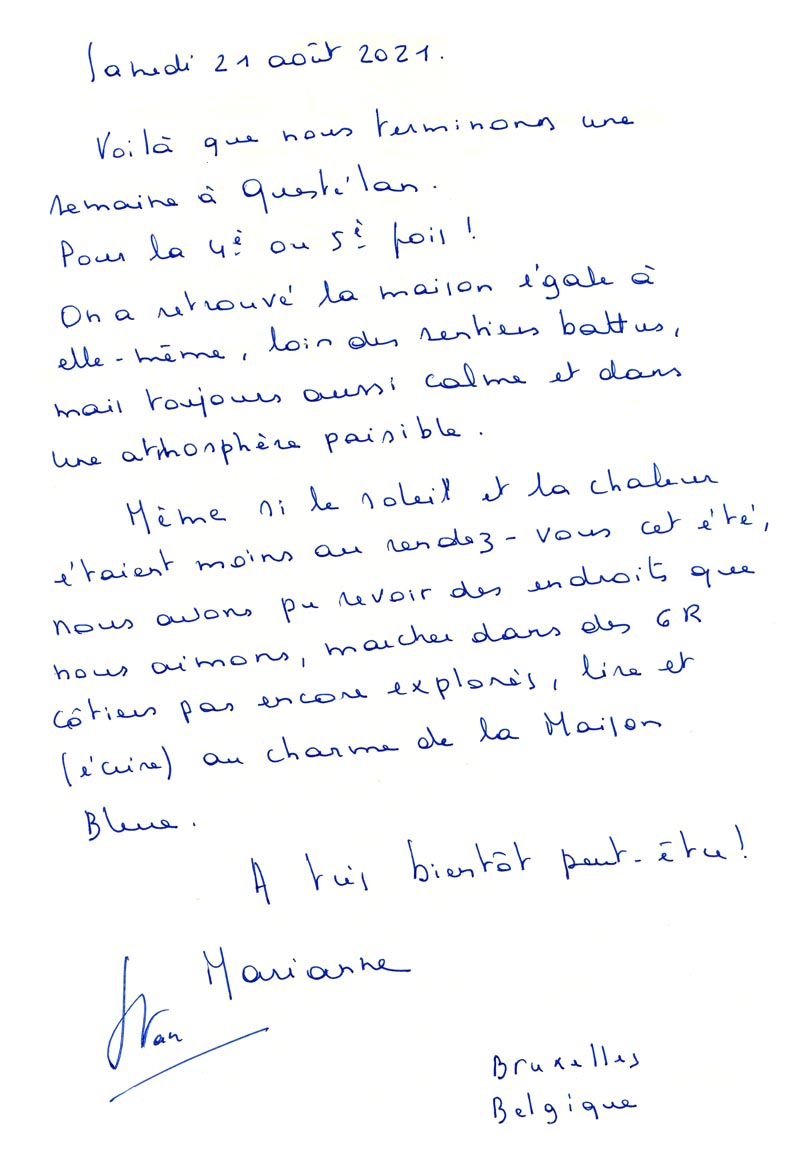 Samedi 21 août 2021.
Voilà que nous terminons une
semaine à Questélan.
Pour la 4è ou 5è fois !
On a retrouvé la maison égale à
elle-même, loin des sentiers battus,
mais toujours aussi calme et dans
une atmosphère paisible.
Même si le soleil et la chaleur
étaient moins au rendez-vous cet été,
nous avons pu revoir des endroits que
nous aimons, marcher dans des GR
côtiers pas encore explorés, lire et
(écrire) au charme de la Maison
Bleue.
A très bientôt peut-être !
Marianne
Bruxelles
Belgique